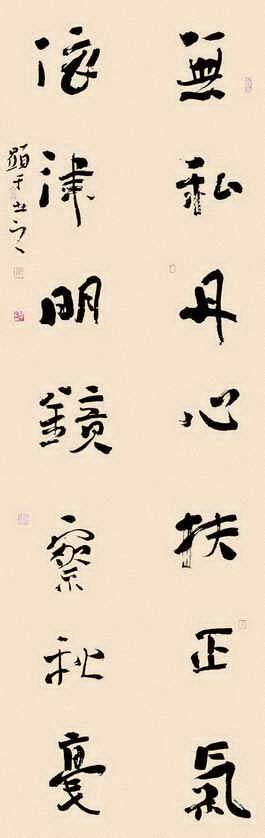 無私丹心扶正氣
依律明鏡察秋毫